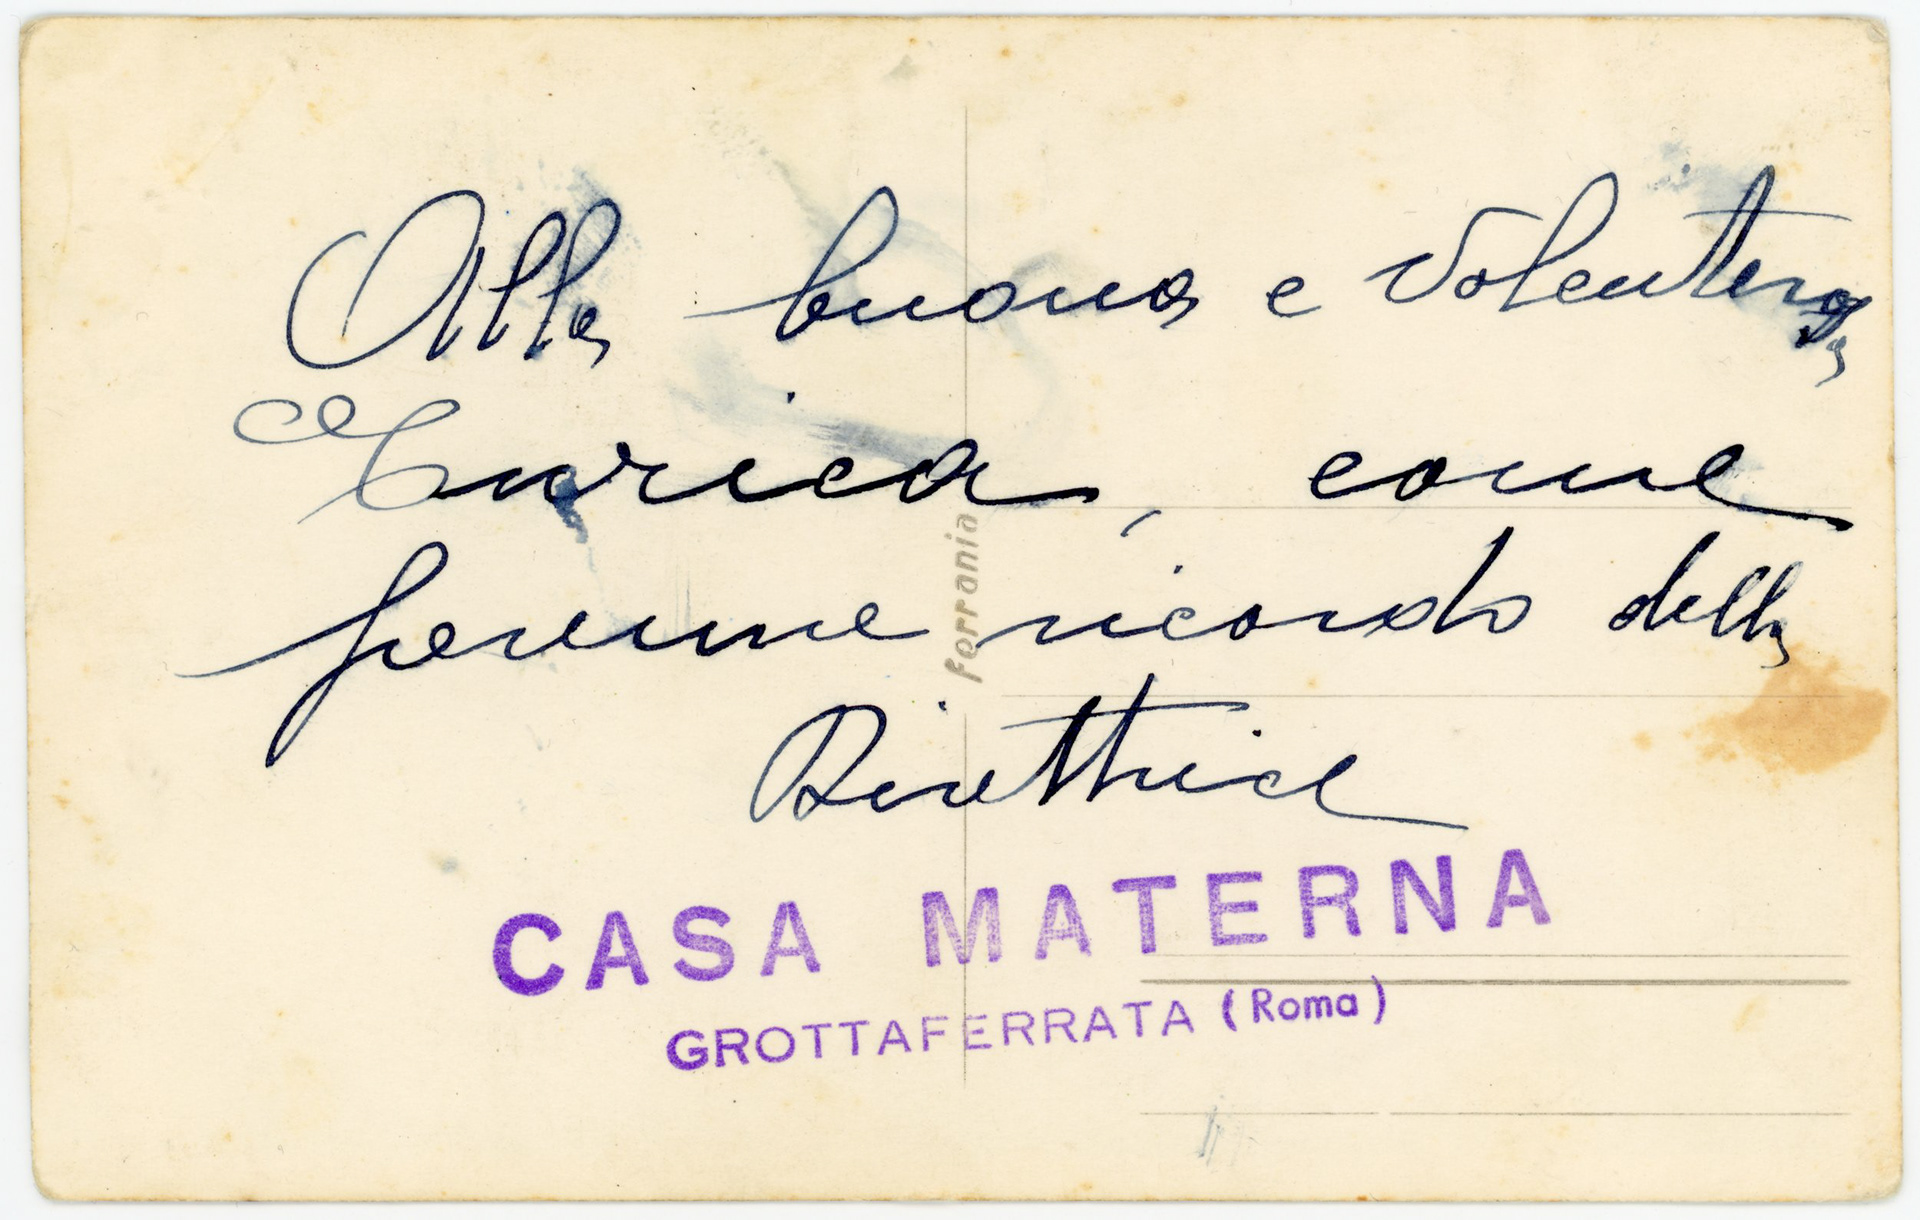 Alla buona e volenterosa
Enrica, come
perenne ricordo della
Direttrice
ferrania
CASA MATERNA
GROTTAFERRATA (Roma)